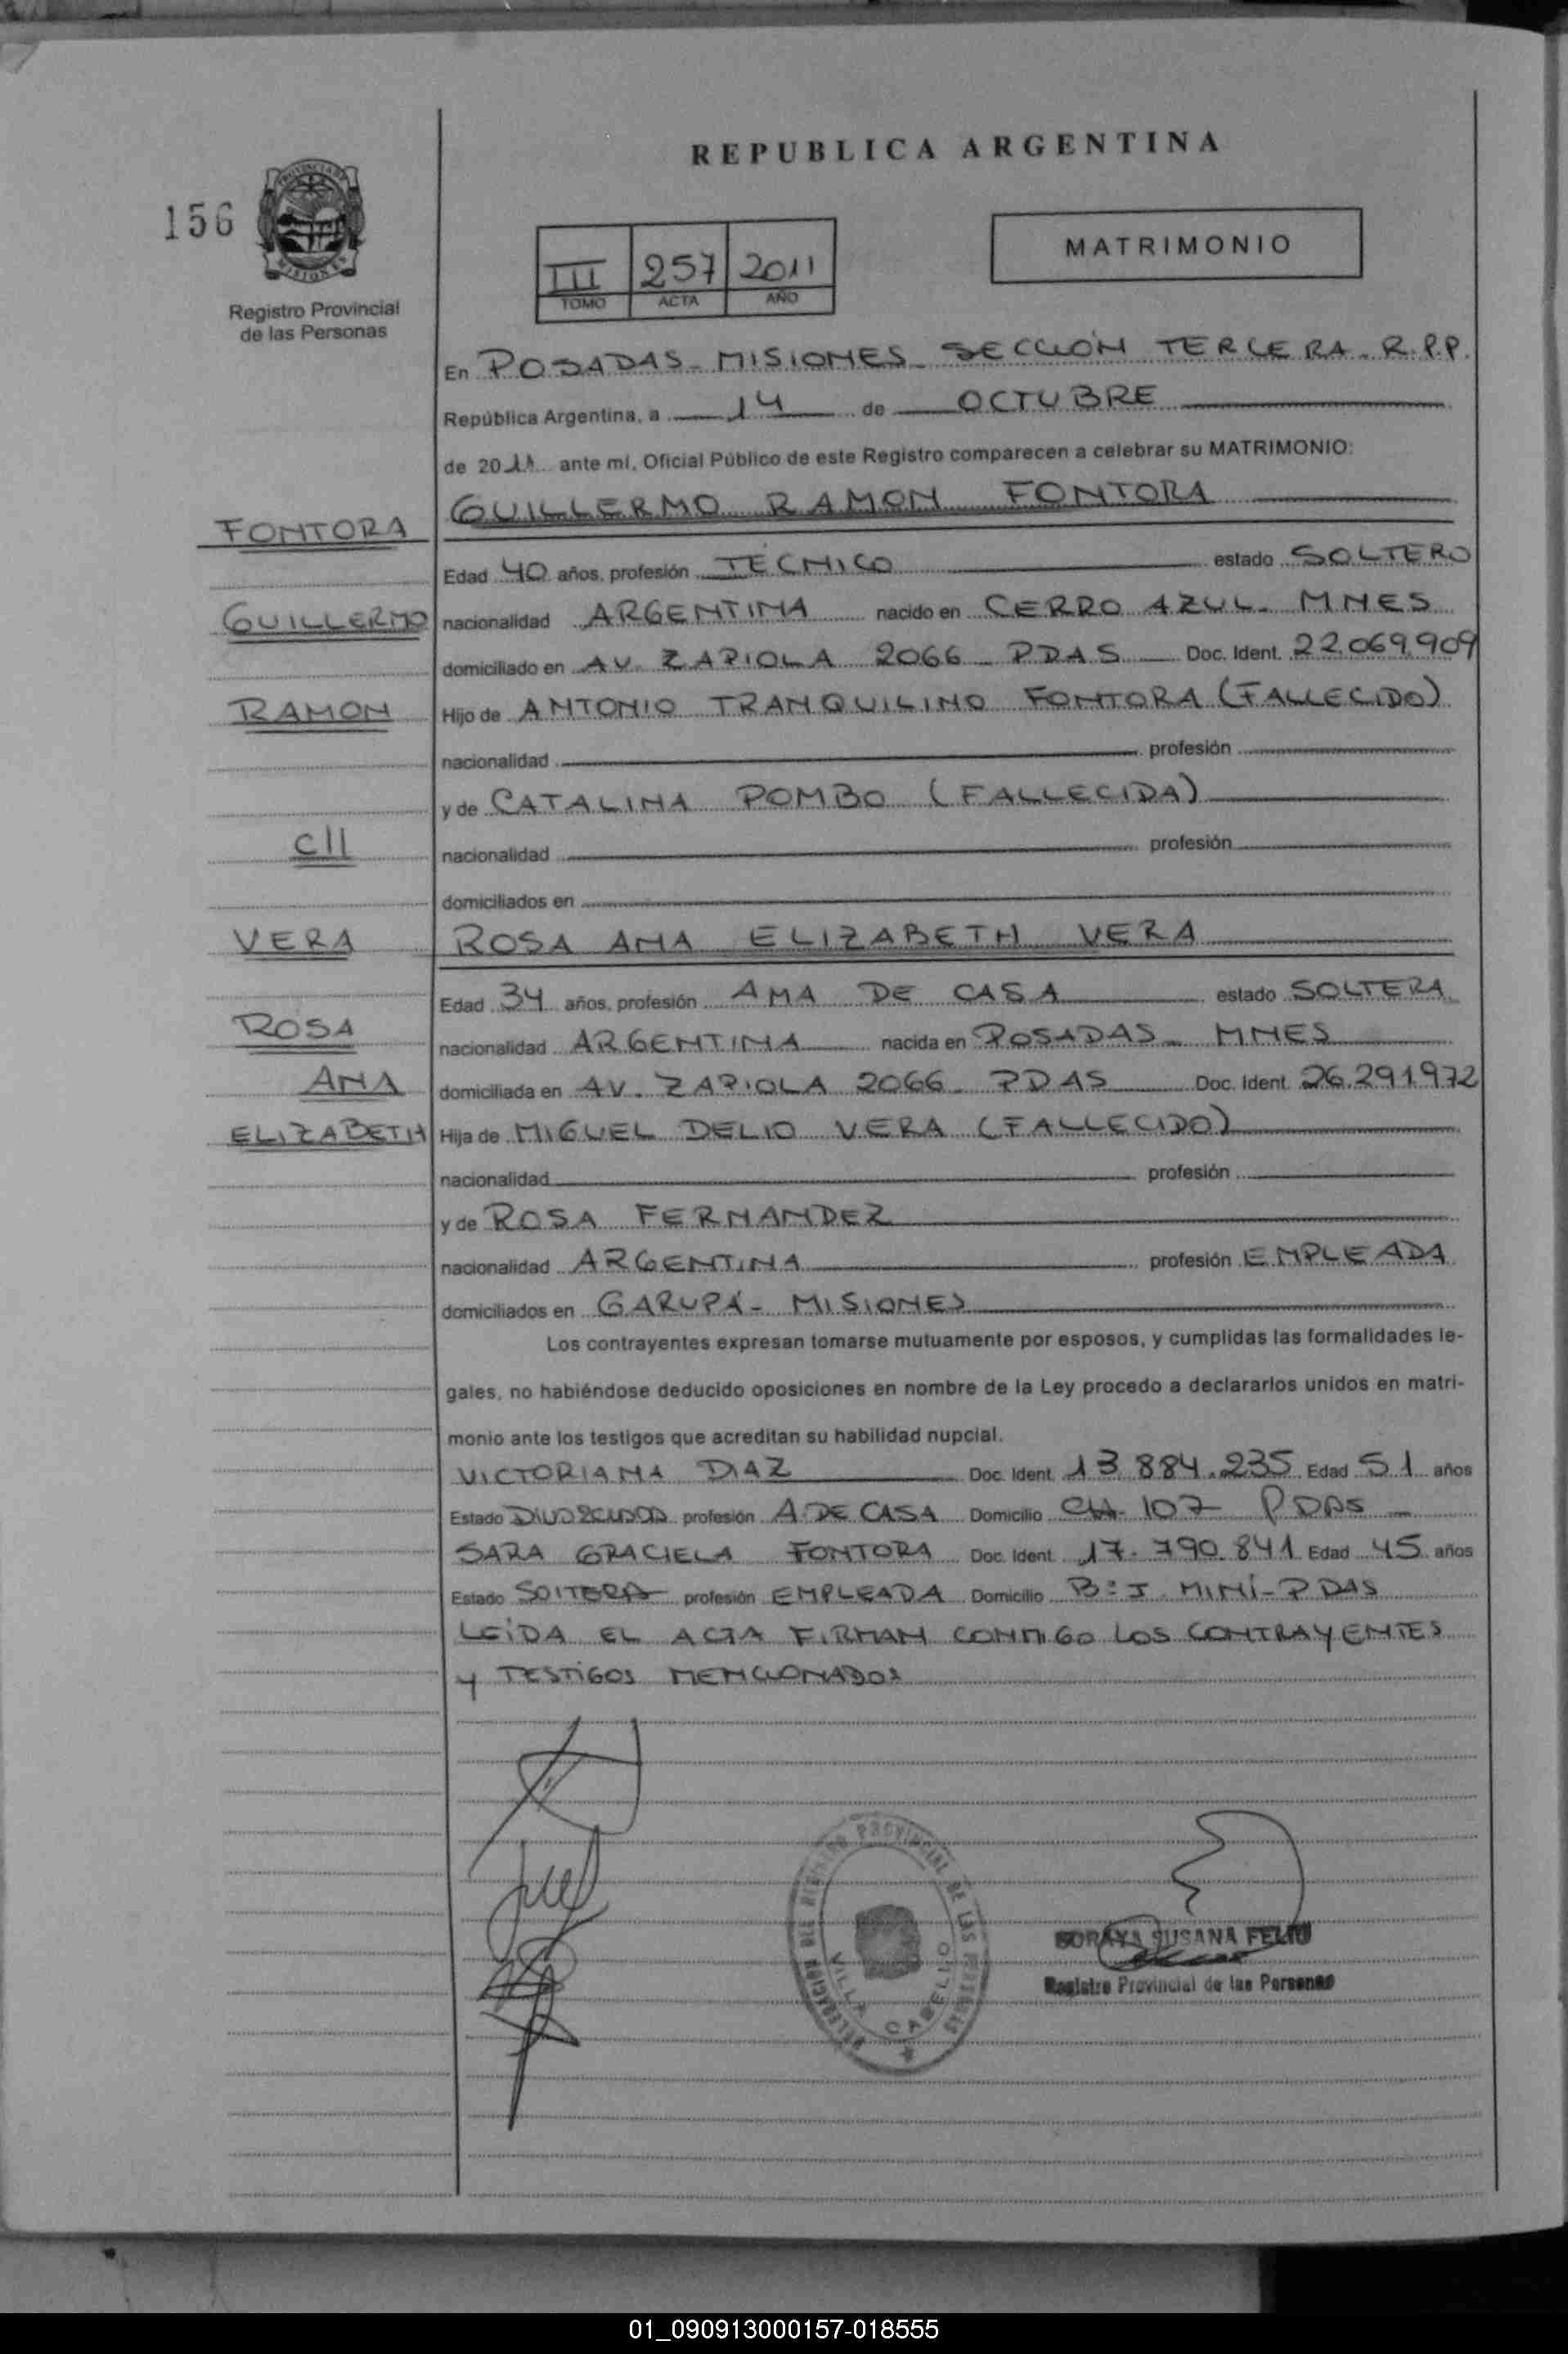 REPUBLICA ARGENTINA
156
PROVINCIA DE
MISIONES
Registro Provincial
de las Personas
III 257 2011
TOMO ACTA AÑO
MATRIMONIO
En POSADAS - MISIONES - SECCIÓN TERCERA - R.P.P.
República Argentina, a 14 de OCTUBRE
de 2011 ante mí, Oficial Público de este Registro comparecen a celebrar su MATRIMONIO:
GUILLERMO RAMON FONTORA
FONTORA
Edad 40 años, profesión TÉCNICO estado SOLTERO
GUILLERMO
nacionalidad ARGENTINA nacido en CERRO AZUL - MNES
domiciliado en AV. ZAPIOLA 2066 - PDAS Doc. Ident. 22.069.909
RAMON
Hijo de ANTONIO TRANQUILINO FONTORA (FALLECIDO)
nacionalidad profesión
y de CATALINA POMBO (FALLECIDA)
C||
nacionalidad profesión
domiciliados en
VERA
ROSA ANA ELIZABETH VERA
Edad 34 años, profesión AMA DE CASA estado SOLTERA
ROSA
nacionalidad ARGENTINA nacida en POSADAS - MNES
ANA
domiciliada en AV. ZAPIOLA 2066 - PDAS Doc. Ident. 26.291.972
ELIZABETH
Hija de MIGUEL DELIO VERA (FALLECIDO)
nacionalidad profesión
y de ROSA FERNANDEZ
nacionalidad ARGENTINA profesión EMPLEADA
domiciliados en GARUPÁ - MISIONES
Los contrayentes expresan tomarse mutuamente por esposos, y cumplidas las formalidades le-
gales, no habiéndose deducido oposiciones en nombre de la Ley procedo a declararlos unidos en matri-
monio ante los testigos que acreditan su habilidad nupcial.
VICTORIANA DIAZ Doc. Ident. 13.884.235 Edad 51 años
Estado profesión A. DE CASA Domicilio CH. 107 PDAS
SARA GRACIELA FONTORA Doc. Ident. 17.790.841 Edad 45 años
Estado SOLTERA profesión EMPLEADA Domicilio Bº I. MINÍ - PDAS
LEÍDA EL ACTA FIRMAN CONMIGO LOS CONTRAYENTES
Y TESTIGOS MENCIONADOS
DELEGACION DEL REGISTRO PROVINCIAL DE LAS PERSONAS
VILLA CABELLO
SORAYA SUSANA FELIU
Registro Provincial de las Personas
01_090913000157-018555